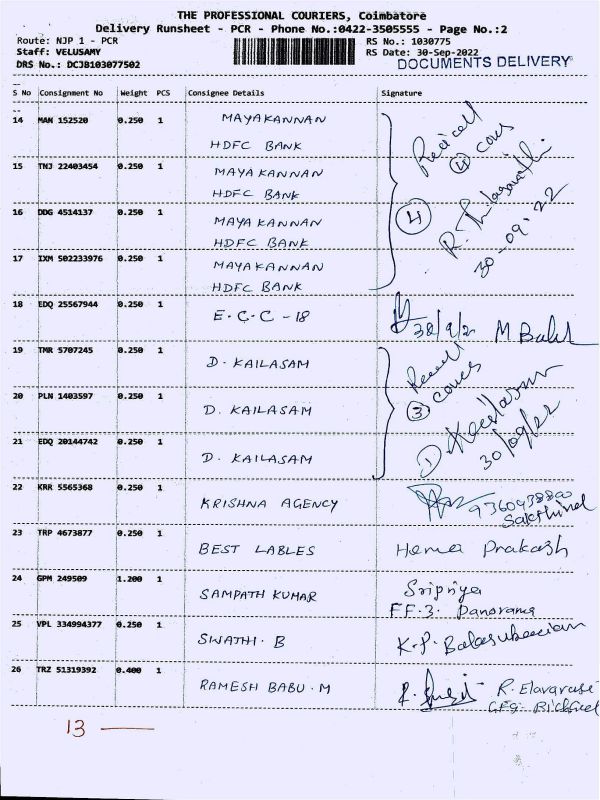 THE PROFESSIONAL COURIERS, Coimbatore
Delivery Runsheet - PCR - Phone No.:0422-3505555 - Page No.:2
Route: NJP 1 - PCR RS No.: 1030775
Staff: VELUSAMY RS Date: 30-Sep-2022
DRS No.: DCJB103077502 DOCUMENTS DELIVERY
S No Consignment No Weight PCS Consignee Details Signature
14 MAN 152520 0.250 1 MAYAKANNAN
HDFC BANK
15 TNJ 22403454 0.250 1 MAYAKANNAN
HDFC BANK
16 DDG 4514137 0.250 1 MAYAKANNAN
HDFC BANK
17 IXM 502233976 0.250 1 MAYAKANNAN
HDFC BANK
4
4 cous
30-09-22
18 EDQ 25567944 0.250 1 E.C.C-18
19 TMR 5707245 0.250 1 D. KAILASAM
20 PLN 1403597 0.250 1 D. KAILASAM
21 EDQ 20144742 0.250 1 D. KAILASAM
3
30/09/22
22 KRR 5565368 0.250 1 KRISHNA AGENCY
23 TRP 4673877 0.250 1 BEST LABLES Hema Prakash
24 GPM 249509 1.200 1 SAMPATH KUMAR Sripriya
FF.3. Panorama
25 VPL 334994377 0.250 1 SWATHI. B
26 TRZ 51319392 0.400 1 RAMESH BABU. M
13